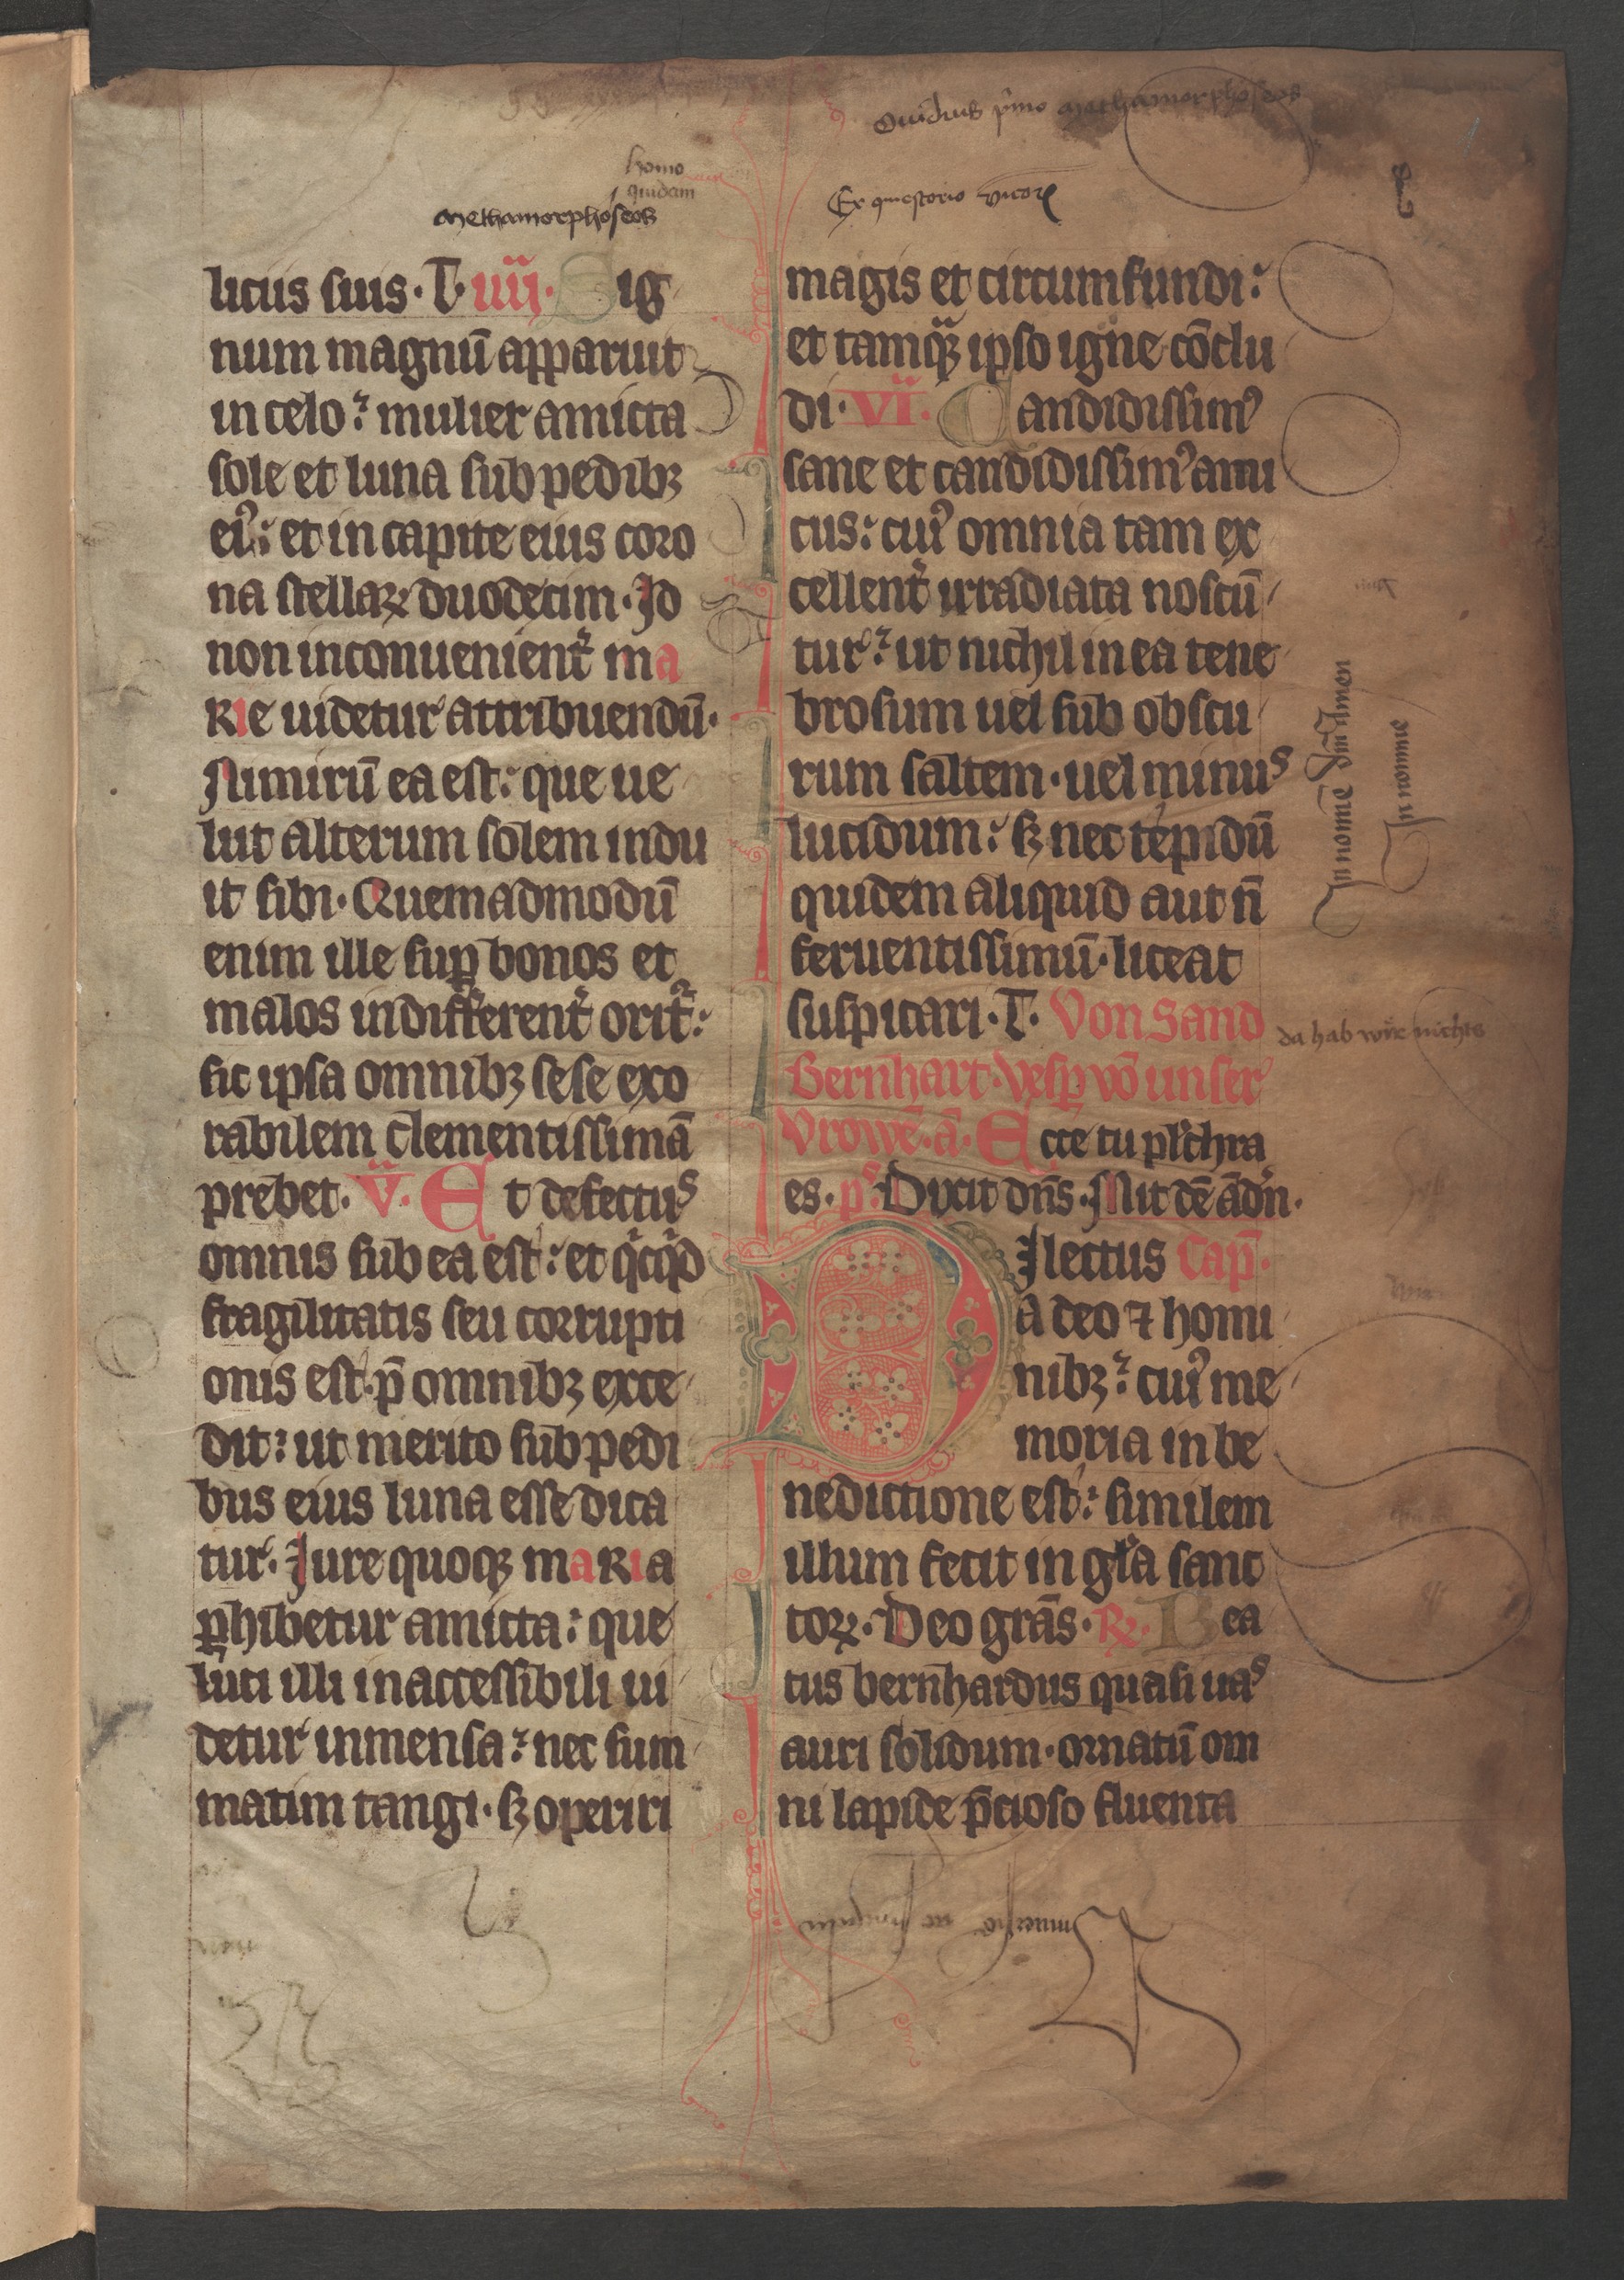 Ouidius p̄mo Methamorphoseos
homo
quidam
Methamorphoseos
Ex questorio
licus suus · T · iiij · Sig
num magnū apparuit
in celo: mulier amicta
sole et luna sub pedibꝫ
eiꝰ: et in capite eius coro
na stellaꝝ duodecim · Id
non inconuenient̉ ma
rie uidetur attribuendū ·
Nimirū ea est: que ue
lut alterum solem indu
it sibi · Quemadmodū
enim ille suꝑ bonos et
malos indifferent̉ orit᷑:
sic ipsa omnibꝫ sese exo
rabilem clementissimā
prebet · v̈ · Et defectus
omnis sub ea est: et qͥcqͥd
fragilitatis seu corrupti
onis est · p̄ omnibꝫ exce
dit: ut merito sub pedi
bus eius luna esse dica
tur · Iure quoqꝫ maria
ꝑhibetur amicta: que
luci illi inaccessibili ui
detur inmensa: nec sum
matim tangi · sꝫ operiri
magis et circumfundi:
et tamqᷓꝫ ipso igne cōclu
di · vi · Candidissimꝰ
sane et candidissimꝰ amī
cus: cuiꝰ omnia tam ex
cellent̉ irradiata noscū
tur: ut nichil in ea tene
brosum uel sub obscu
rum saltem · uel minus
lucidum: sꝫ nec tepidū
quidem aliquid aut n̄
feruentissimū · liceat
suspicari · T · Von Sand
Bernhart · Vesꝑ vō unser
Vrowē · ā · Ecce tu pulchra
es · ps · Dixit dn̄s · Mit dē ādn̄ ·
Dilectus Cap̄ ·
a deo ⁊ homi
nibꝫ: cuiꝰ me
moria in be
nedictione est: similem
illum fecit in gl̄a sanc
toꝝ · Deo grās · ℞ · Bea
tus bernhardus quasi uas
auri solidum · ornatū om
ni lapide p̄cioso fluenta
In nomē dm̄ Amen
In nomine
da hab wir nichts